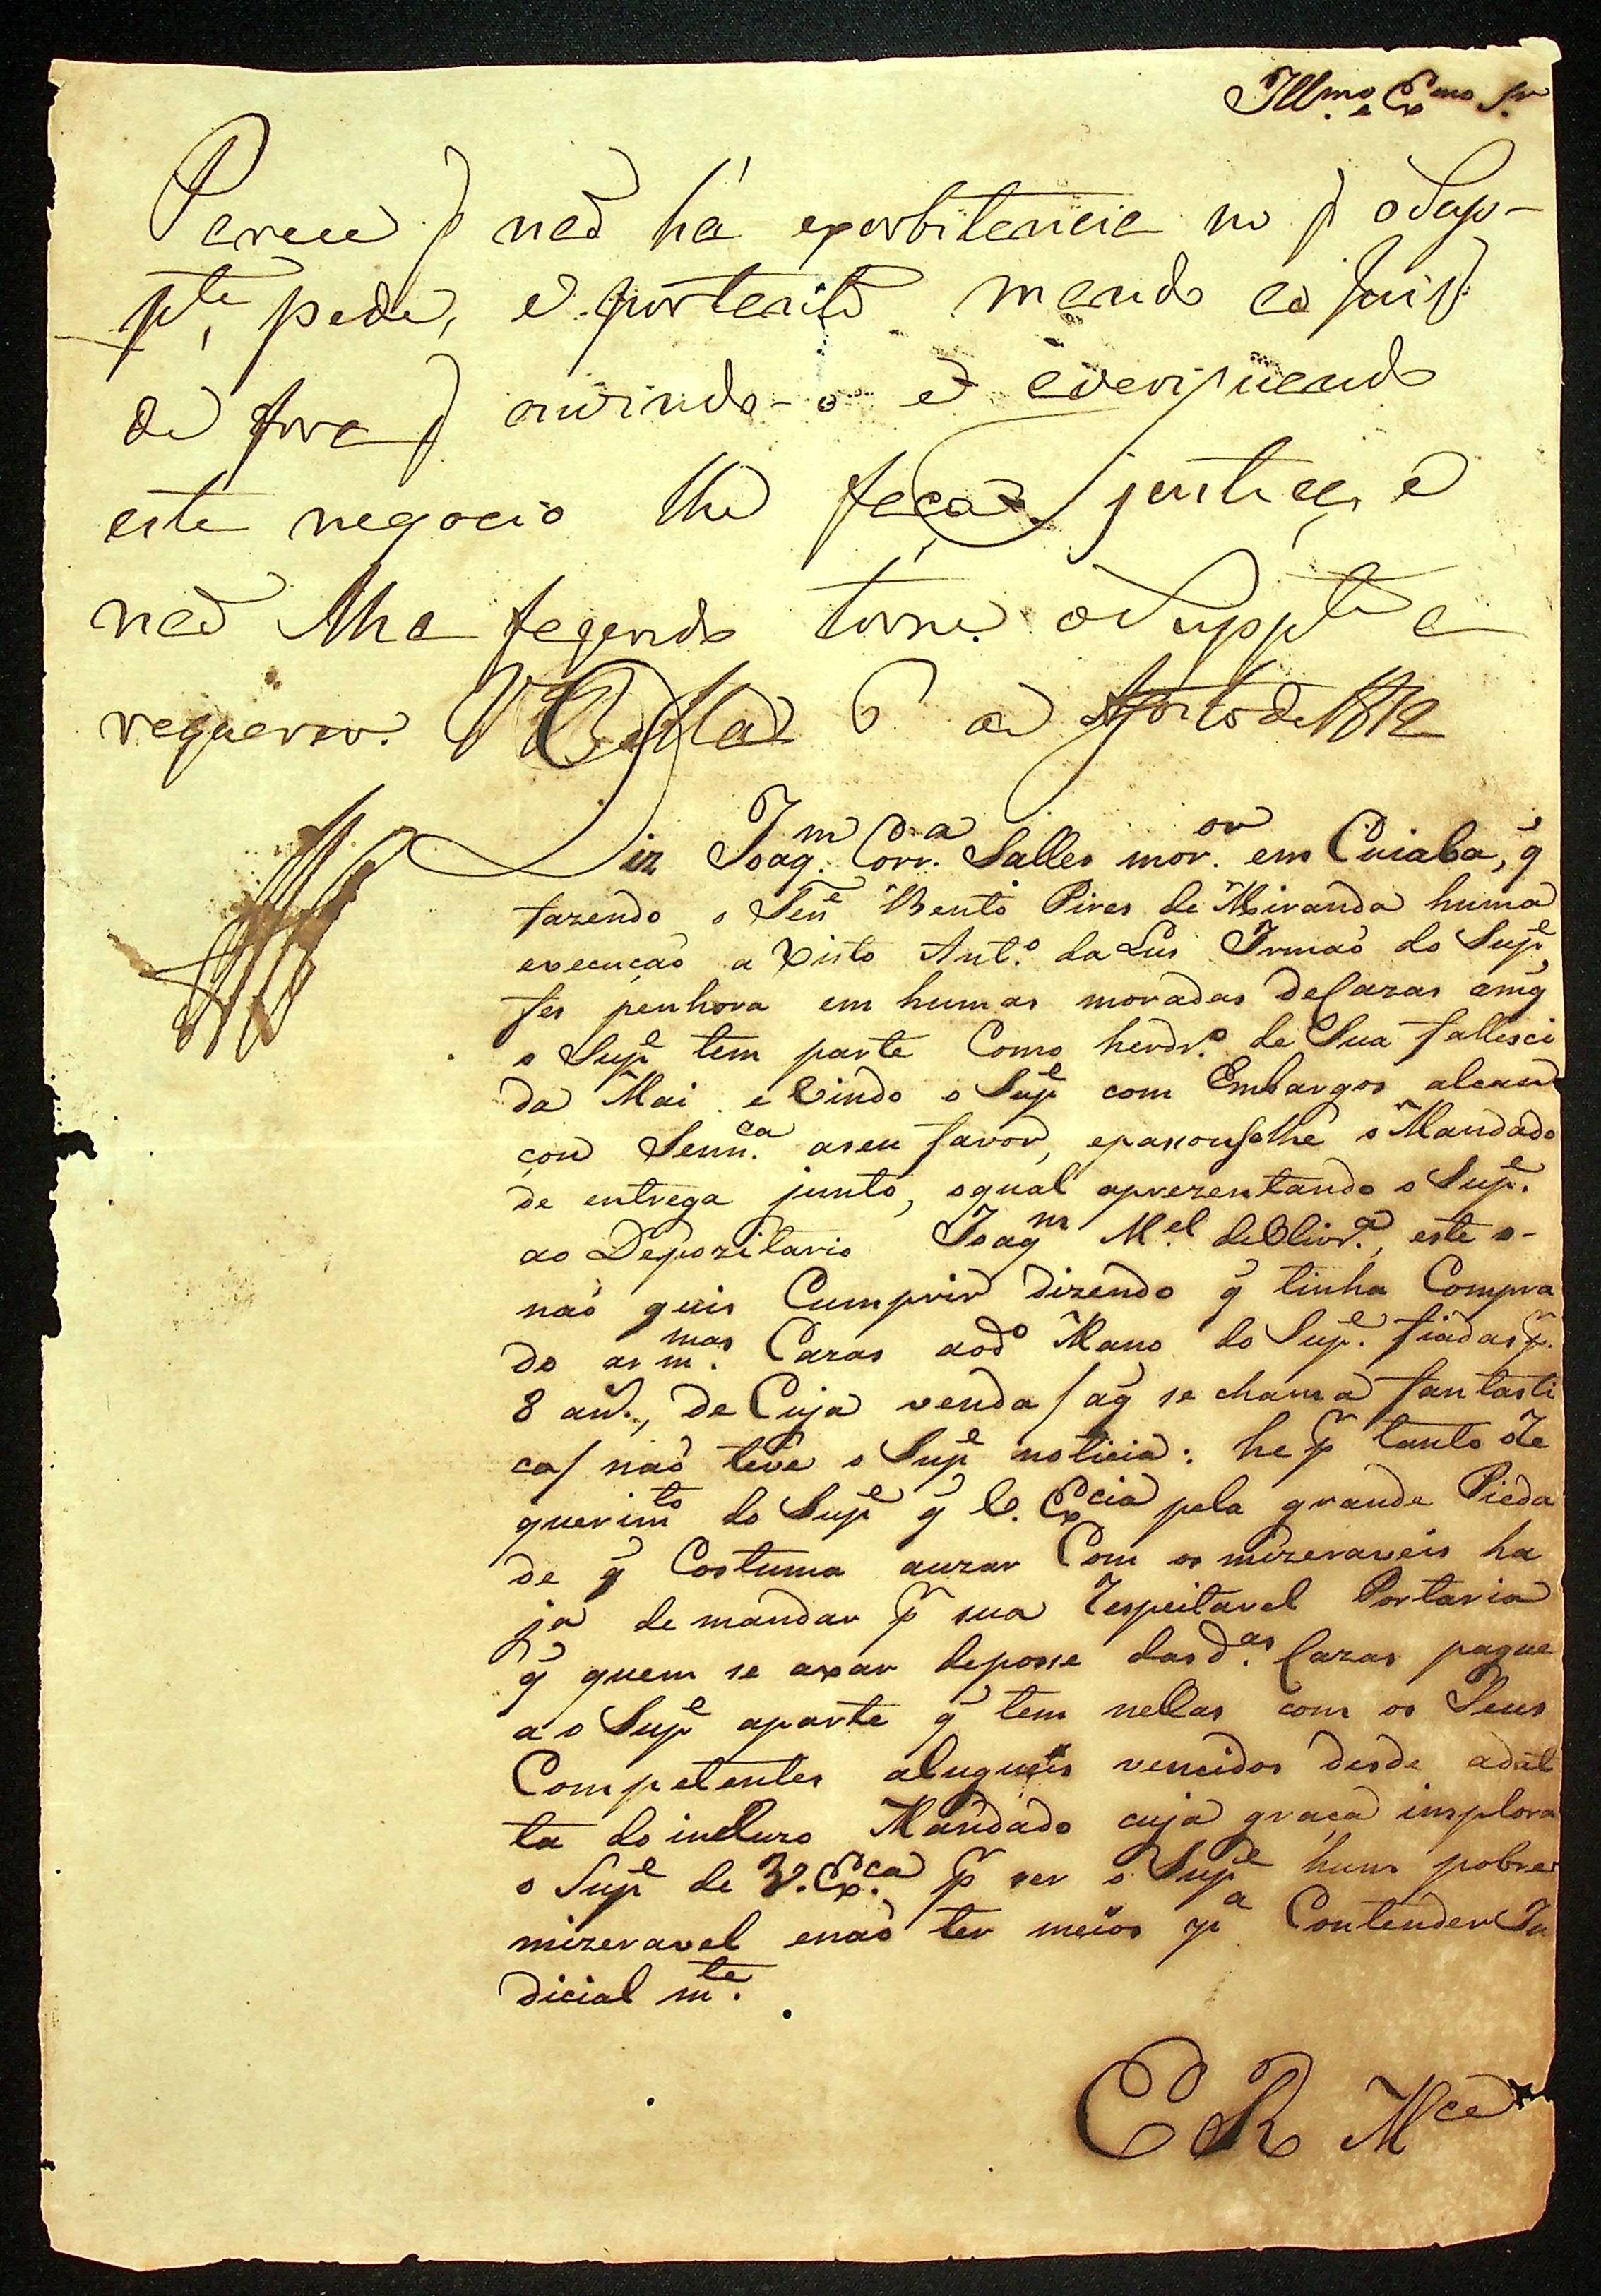 Illmo. e Exmo. Sr.
Parece q̃ naõ ha exorbitancia no q̃ o Sup-
pte. pede, e portanto mando ao Juis
de fora q̃ ouvindo-o e averiguando
este negocio lhe faça justiça, e
naõ lha fazendo torne o Supplte a
requerer. Va Bella 6 de Agosto de 1812
Diz Joaqm. Corra. Salles moror. em Cuiaba, q̃
fazendo o Tene Bento Pires de Miranda huma
execuçaõ a Xisto Anto. da Lus Irmaõ do Supe,
fes penhora em humas moradas de Cazas em q̃
o Supe tem parte Como herdro. de Sua fallesci
da Mai e vindo o Supe com Embargos alcan
çou Sennca. a seu favor, e passouselhe o Mandado
de entrega junto, o qual aprezentando o Supe.
ao Depozitario Joaqm Mel. de Olivra., este o-
naõ quis Cumprir dizendo q̃ tinha Compra
do as mmas. Cazas ao do Mano do Supe. fiadas pr.
8 an., de Cuja venda / a q̃ se chama fantasti
ca / naõ teve o Supe noticia: he pr tanto Re
querimto do Supe q̃ V. Excia pela grande Pieda
de q̃ Costuma auzar Com os mizeraveis ha
ja de mandar pr sua Respeitavel Portaria
q̃ quem se axar de posse das das. Cazas pague
ao Supe aparte q̃ tem nellas com os Seus
Competentes alugueis vencidos desde adat
ta do incluzo Mandado cuja graça implora
o Supe de V. Exca. pr ser o Supe hum pobre
mizeravel enaõ ter meios pa Contender Ju
dicial mte.
E R Mce